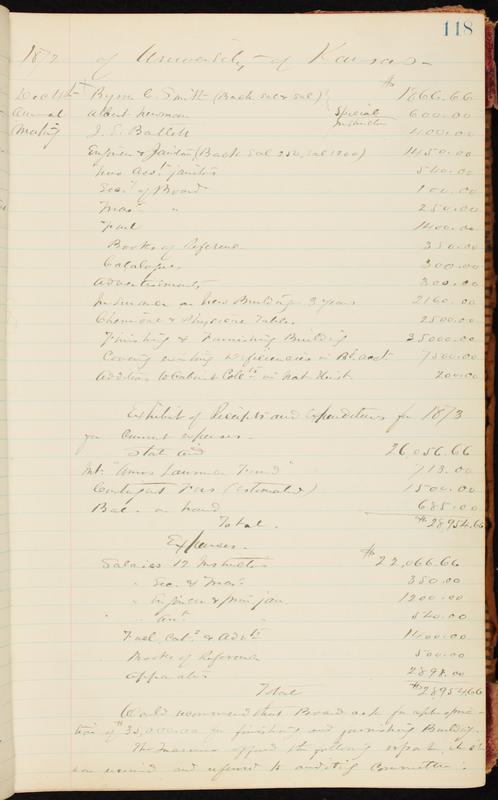 118
1872 of University of Kansas -
Dec 4th Byron C. Smith (Back sal & sal) $ 1866.66
Annual Albert Newman Special Instructor 600.00
Meeting J. E. Bartlett 400.00
Engineer & Janitor (Back Sal 250, sal 1200) 1450.00
Two Asst janitors 540.00
Sec'y of Board 100.00
Treas " 250.00
Fuel 1400.00
Books of Reference 350.00
Catalogues 300.00
Advertisements 300.00
Insurance on New Building 3 years 2160.00
Chemical & Physical Tables 2500.00
Finishing & Furnishing Building 35000.00
Covering existing deficiencies in Bd acct 7500.00
Addition to Cabinet Colls in Nat Hist 200.00
Exhibit of Receipts and Expenditures for 1873
for current expenses -
State aid 26,056.66
Int. "Amos Lawrence Fund" 713.00
Contingent Fees (estimated) 1500.00
Bal - on hand 685.00
Total - $28954.66
Expenses -
Salaries 12 Instructors $22,066.66
" Sec. & Treas 350.00
" Engineer & jan 1200.00
" Asst " 540.00
Fuel, Cats & Advts 1400.00
Books of Reference 500.00
Apparatus 2898.00
Total $28954.66
Would recommend that Board ask for appropria-
tion of $35,000.00 for finishing and furnishing Building.
The Treasurer offered the following report,
was received and referred to auditing Committee: